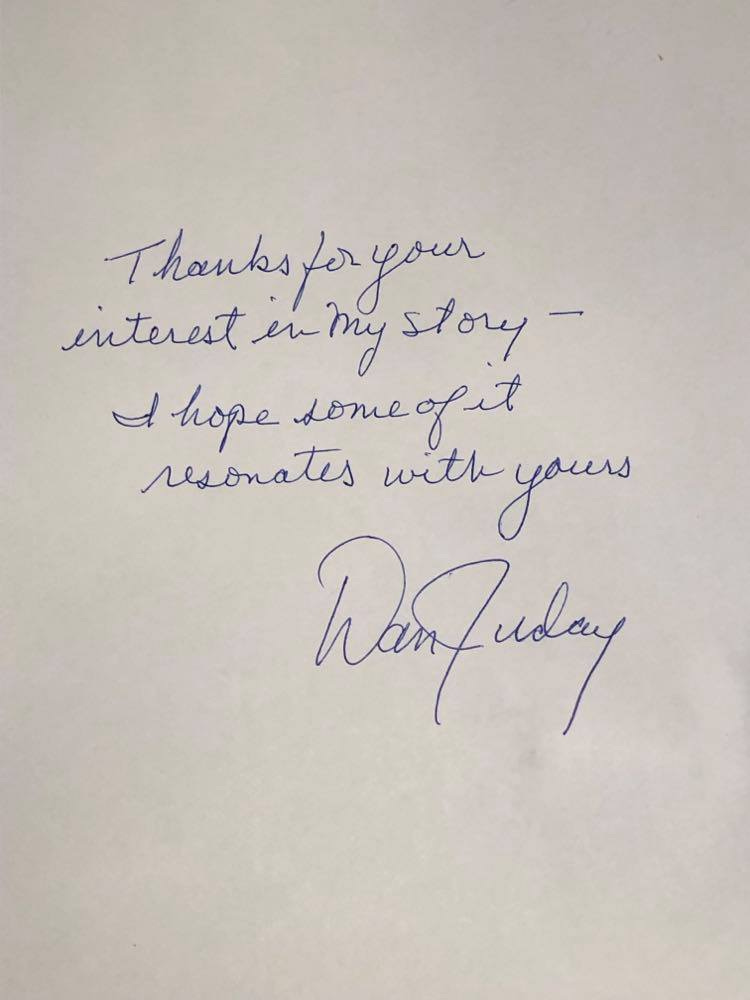 Thanks for your
interest in my story –
I hope some of it
resonates with yours
Dan Juday